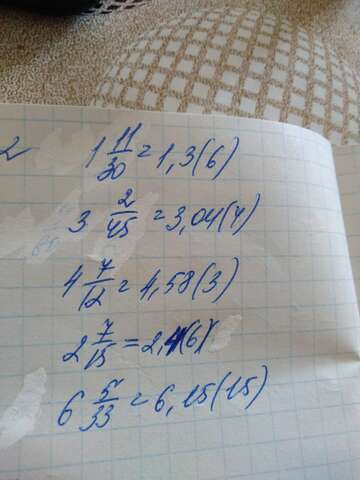 2 1 11/30 = 1,3(6)
3 2/45 = 3,04(4)
4 7/12 = 4,58(3)
2 7/15 = 2,4(6)
6 5/33 = 6,15(15)